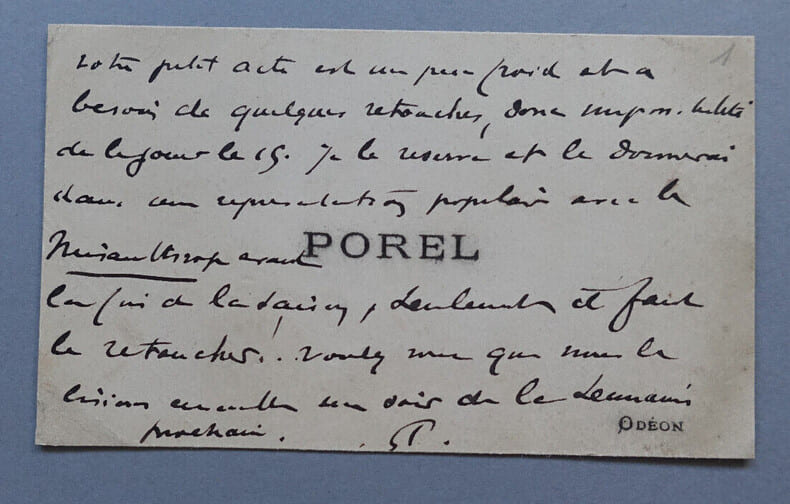 1
votre petit acte est un peu froid et a
besoin de quelques retouches, donc impossibilité
de le jouer le 15. Je le reserve et le donnerai
dans une representation populaire avec le
Misanthrope avant
POREL
la fin de la saison, seulement il faut
le retoucher. voulez vous que nous le
lisions ensemble un soir de la semaine
prochaine.
ODÉON